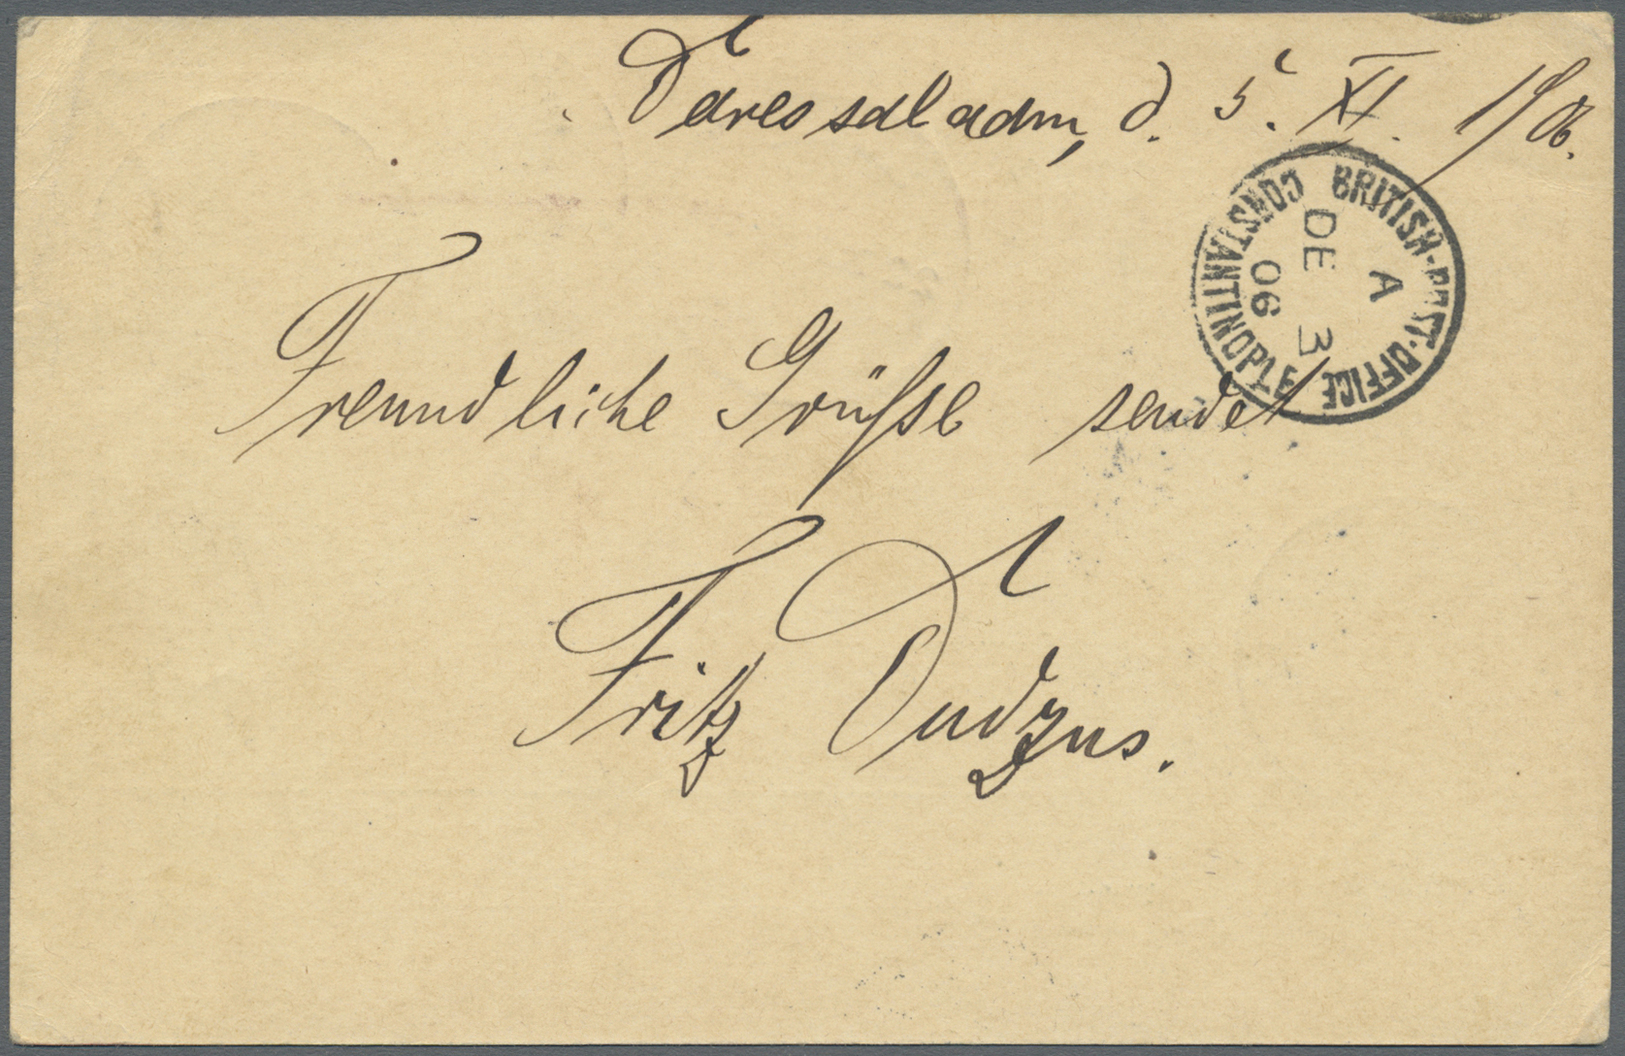 Daressalaam, d. 5. XI. 1906.
BRITISH·POST·OFFICE
CONSTANTINOPLE
A
DE 3
06
Freundliche Grüße sendet
Fritz Dudzus.